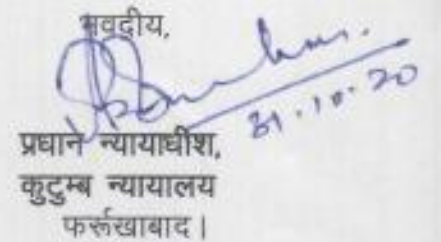 भवदीय,
31.10.20
प्रधान न्यायाधीश,
कुटुम्ब न्यायालय
फर्रूखाबाद।